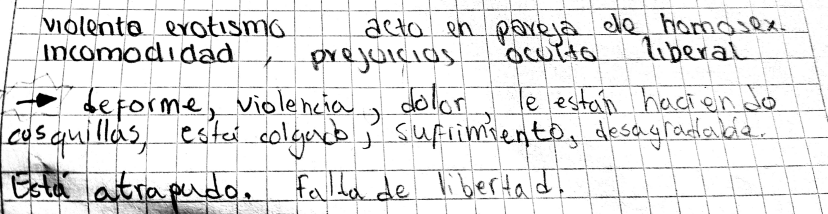 violento erotismo acto en pareja de homosex.
incomodidad, prejuicios oculto liberal
→ deforme, violencia, dolor, le están haciendo
cosquillas, está colgado, sufrimiento, desagradable.
Está atrapado. Falta de libertad.